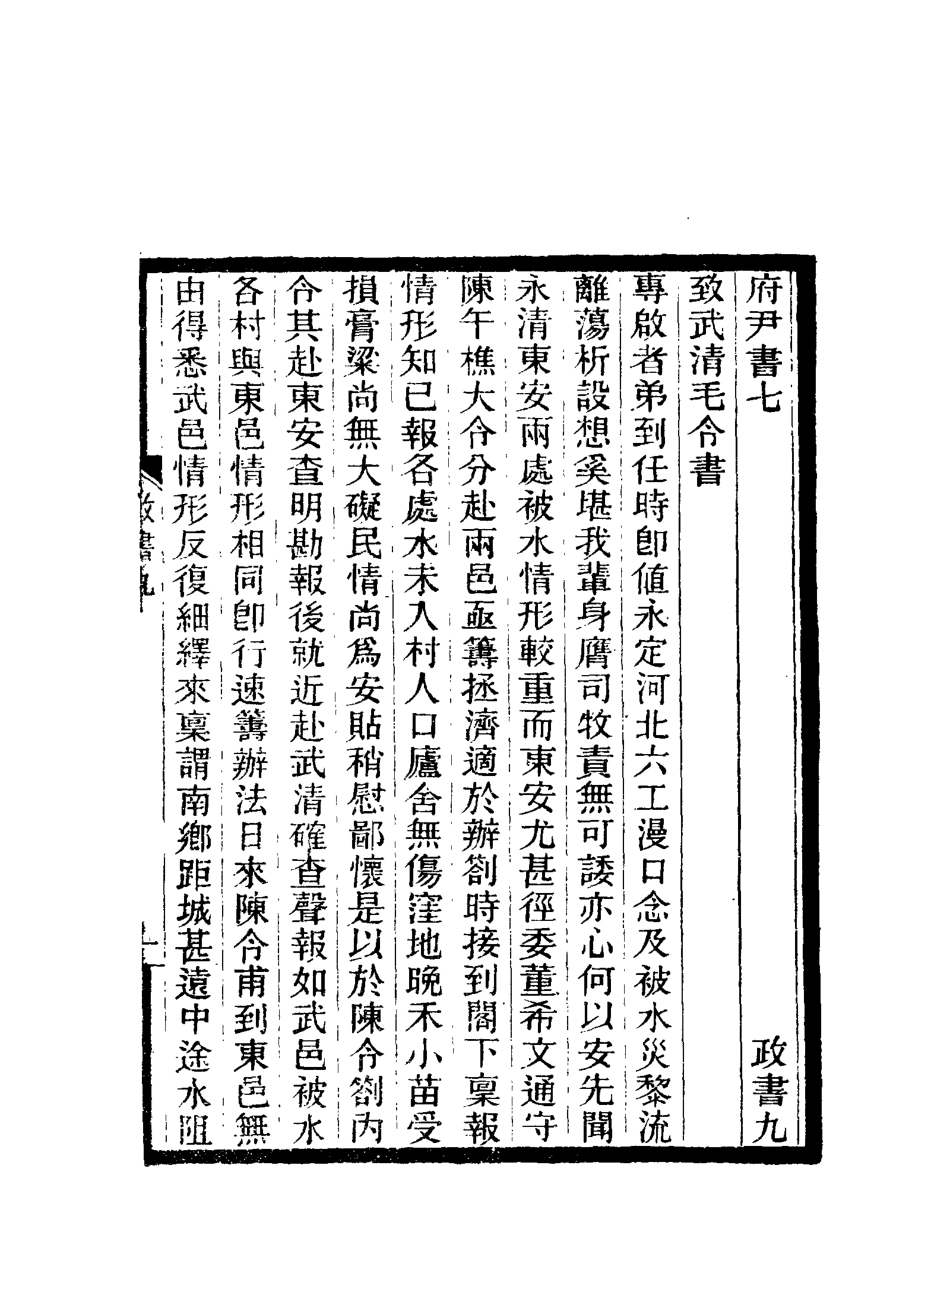 府尹書七 政書九
致武清毛令書
專啟者弟到任時卽値永定河北六工漫口念及被水災黎流
離蕩析設想奚堪我輩身膺司牧責無可諉亦心何以安先聞
永清東安兩處被水情形較重而東安尤甚徑委董希文通守
陳午樵大令分赴兩邑亟籌拯濟適於辦劄時接到閣下稟報
情形知已報各處水未入村人口廬舍無傷窪地晚禾小苗受
損膏粱尚無大礙民情尚爲安貼稍慰鄙懷是以於陳令劄內
令其赴東安查明勘報後就近赴武清確查聲報如武邑被水
各村與東邑情形相同卽行速籌辦法日來陳令甫到東邑無
由得悉武邑情形反復細繹來稟謂南鄉距城甚遠中途水阻
政書九